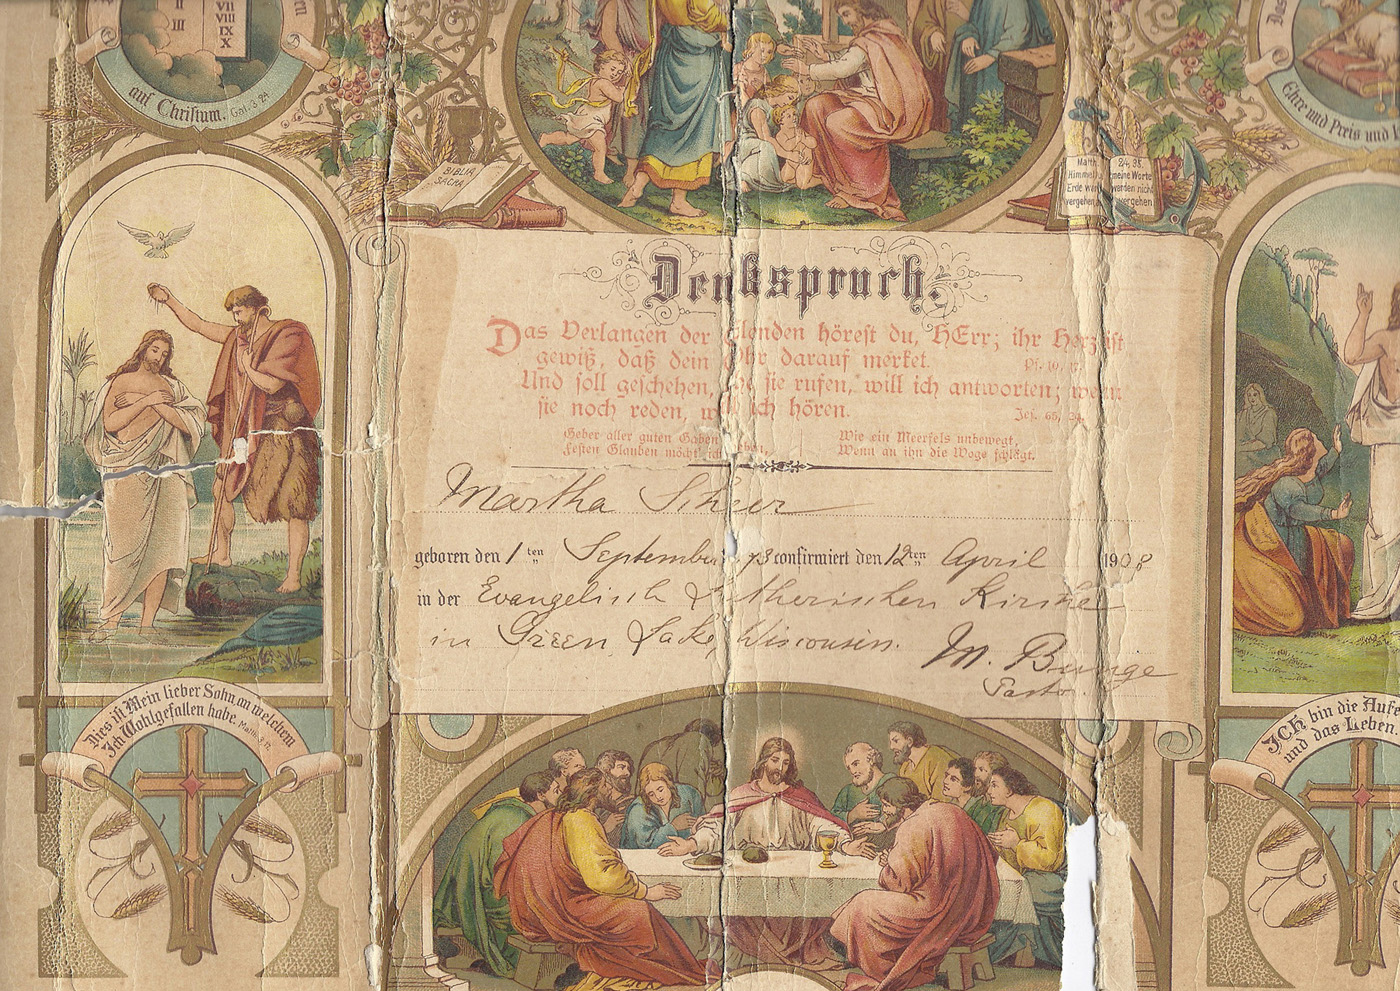 II
III
VII
VIII
IX
X
auf Christum. Gal. 3 24
Das
Ehre und Preis und
BIBLIA
SACRA
Matth 24, 35.
Himmel u meine Worte
Erde wer werden nicht
vergehen vergehen
Denkspruch.
Das Verlangen der Elenden hörest du, HErr; ihr Herz ist
gewiß, daß dein Ohr darauf merket. Ps. 10, 17.
Und soll geschehen, ehe sie rufen, will ich antworten; wenn
sie noch reden, will ich hören. Jes. 65, 24.
Geber aller guten Gaben
Festen Glauben möcht ich haben,
Wie ein Meerfels unbewegt,
Wenn an ihn die Woge schlägt.
Martha Scheer
geboren den 1ten September 93 confirmiert den 12ten April 1908
in der Evangelisch Lutherischen Kirche
in Green Lake, Wisconsin.
M. Bunge
Pastor.
Dies ist Mein lieber Sohn, an welchem
Ich Wohlgefallen habe. Matth. 3
ICH bin die Aufe
und das Leben.